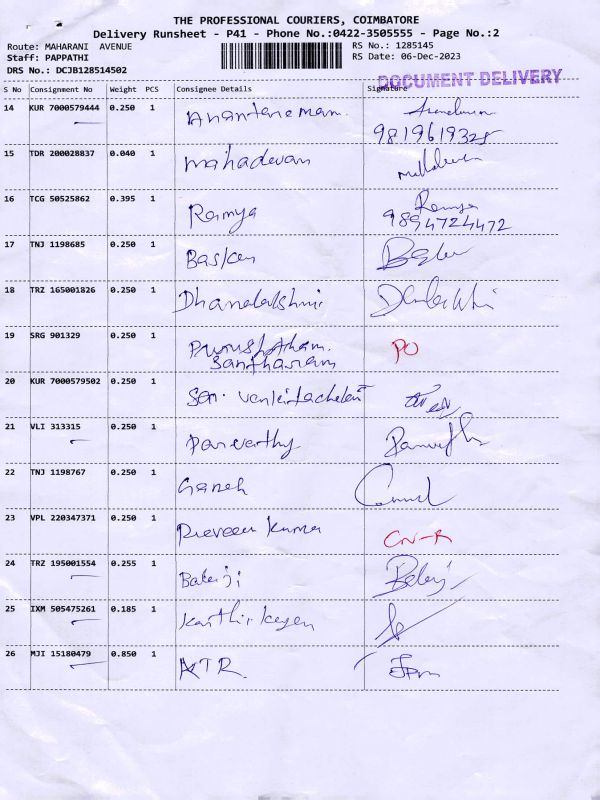 THE PROFESSIONAL COURIERS, COIMBATORE
Delivery Runsheet - P41 - Phone No.:0422-3505555 - Page No.:2
Route: MAHARANI AVENUE RS No.: 1285145
Staff: PAPPATHI RS Date: 06-Dec-2023
DRS No.: DCJB128514502
DOCUMENT DELIVERY
S No Consignment No Weight PCS Consignee Details Signature
14 KUR 7000579444 0.250 1
9819619325
15 TDR 200028837 0.040 1 mahadevan
16 TCG 50525862 0.395 1 Ramya Ramya
9894724472
17 TNJ 1198685 0.250 1 Baskar
18 TRZ 165001826 0.250 1 Dhanalakshmi
19 SRG 901329 0.250 1 Purushotham. PO
Santharam
20 KUR 7000579502 0.250 1
21 VLI 313315 0.250 1 Parvarthy
22 TNJ 1198767 0.250 1 Ganesh
23 VPL 220347371 0.250 1 Praveen Kumar CN-R
24 TRZ 195001554 0.255 1 Balaji Balaji
25 IXM 505475261 0.185 1 Karthikeyen
26 MJI 15180479 0.850 1 KTR.